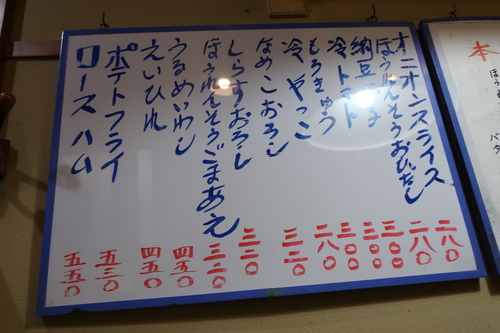 オニオンスライス 二八〇
ほうれんそうおひたし 二八〇
納豆 三〇〇
冷トマト 三〇〇
もろきゅう 三〇〇
冷やっこ 二八〇
なめこおろし
しらすおろし 三三〇
ほうれんそうごまあえ 三三〇
うるめいわし 四五〇
えいひれ 四五〇
ポテトフライ 五三〇
ロースハム 五五〇
本
ほうれ
バタ